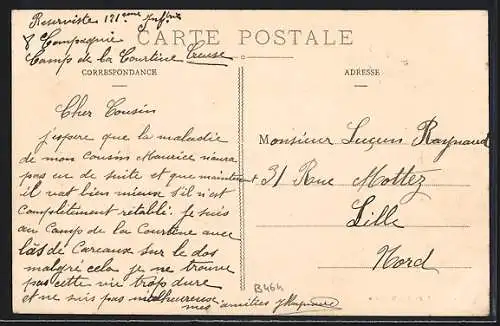 Reserviste 121eme Inf
8 Compagnie
Camp de la Courtine Creuse
CARTE POSTALE
CORRESPONDANCE
Cher Cousin
j'espere que la maladie
de mon Cousin Maurice naura
pas eu de suite et que maintenant
il vat bien mieux s'il n'est
Completement rétabli. Je suis
au Camp de la Courtine avec
lâs de Careaux sur le dos
malgré cela je ne trouve
pas cette vie trop dure
et ne suis pas malheureuse.
mes amities
B464
ADRESSE
Monsieur Luçien Raynaud
31 Rue Mottez
Lille
Nord